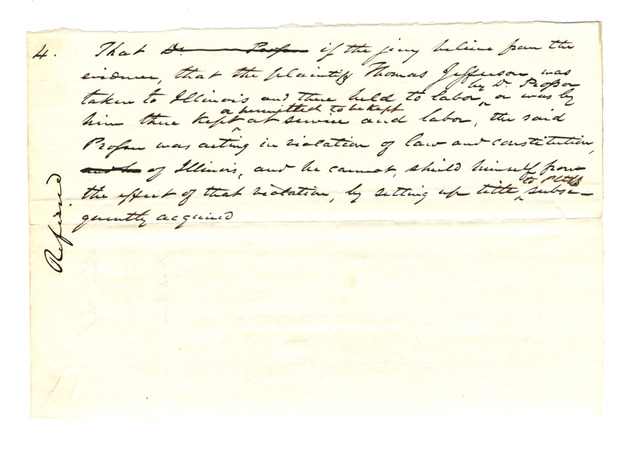 4. That Dr. Prosser if the jury believe from the
evidence, that the plaintiff Thomas Jefferson, was
by Dr. Prosser
taken to Illinois and there held to labor, or was by
or permitted to be kept
him there kept at service and labor, the said
Prosser was acting in violation of law and constitution,
of Illinois, and he cannot, shield himself from
the effect of that violation, by setting up title to subse-
quently acquired
Refused